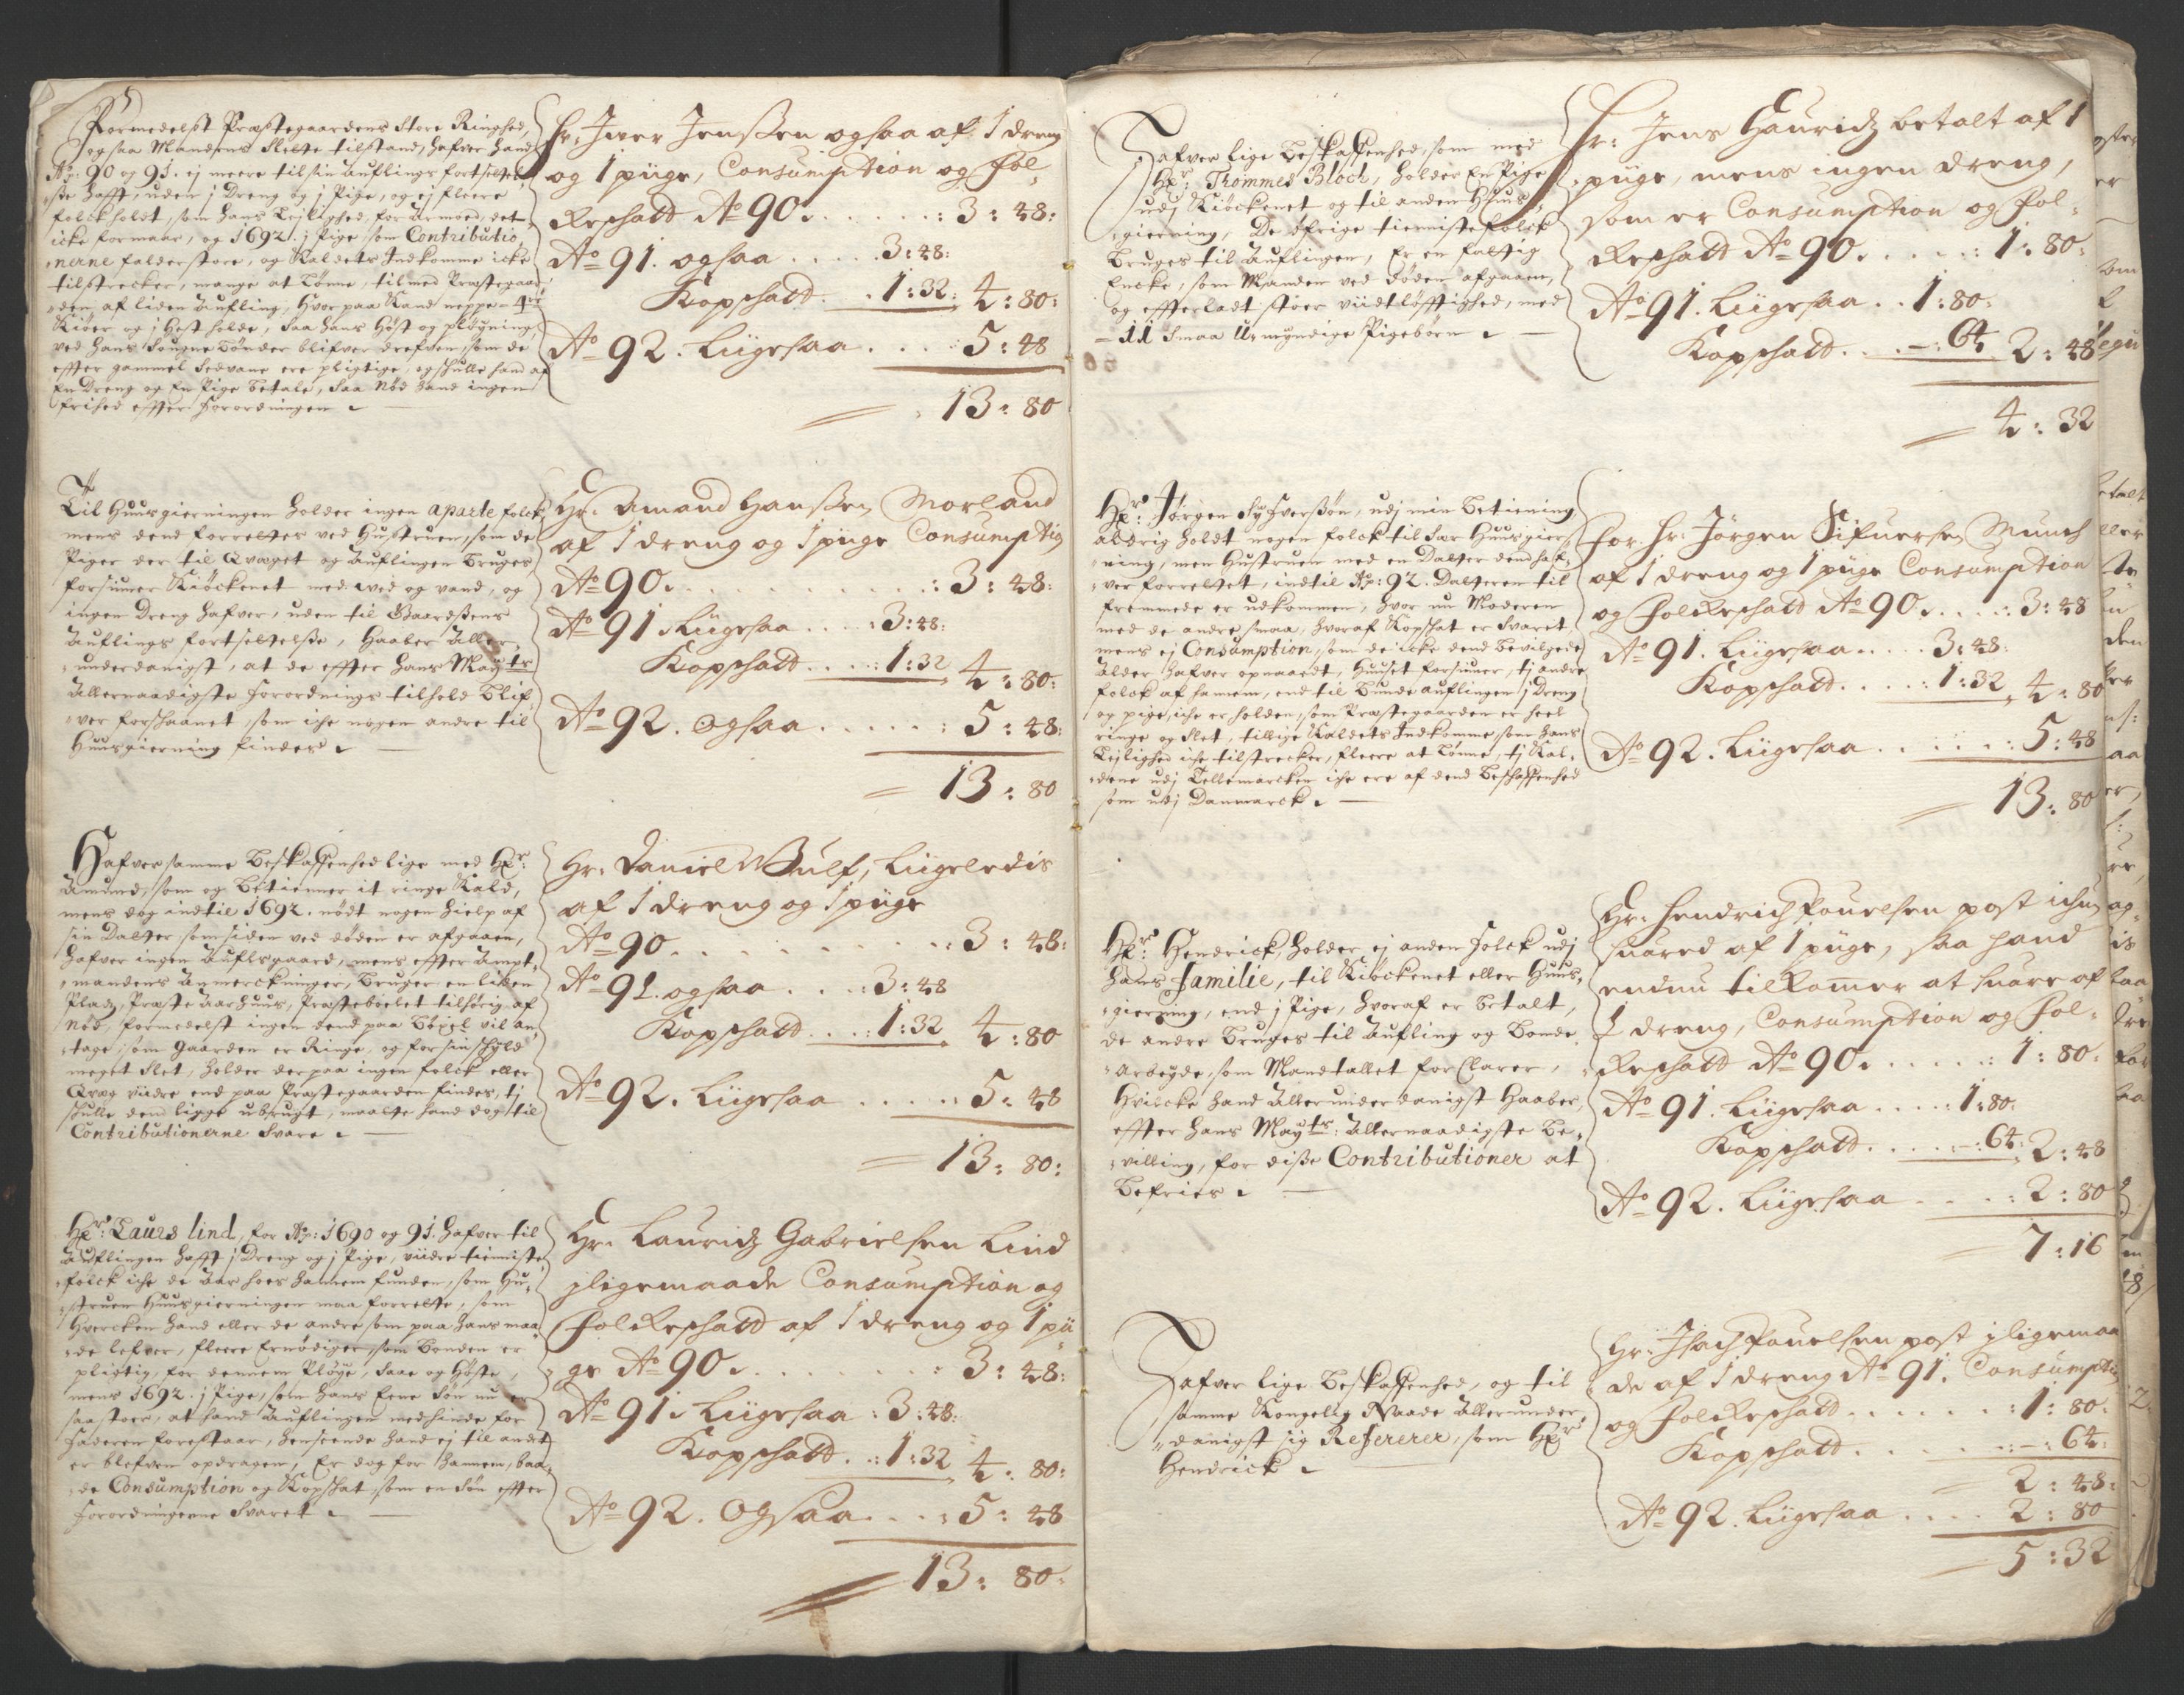 Formedelst Præstegaardens store Ringhed,
og saa Mandens slette tilstand, hafver hand
Ao: 90 og 91. ej meere til sin Auflings fortsettel-
se hafft, uden j Dreng og j Pige, og ej fleere
folck holdt, som hans Lejlighed, for Armoed, det
icke formaar, og 1692. j Pige som Contributio-
nerne falder store, og Kaldets Indkomme icke
tilstrecker, mange at Lønne, tilmed Præstegaar-
den af liden Aufling, hvor paa Kand neppe 4re
Kiør og j Hest holde, saa hans Høst og pløyning
ved hans Sougne bønder blifver drefven, som de
effter gammel Sedvane ere pligtige, og skulle hand af
En Dreng og En Pige betale, saa nød hand ingen
frihed effter forordningen.
Hr: Jwer Jenssen ogsaa af 1 dreng
og 1 piige, Consumption og fol-
keschatt Ao 90. . . . . . : 3 : 48:
Ao 91. ogsaa . . . . . 3: 48:
Kopschatt. . . 1: 32: 4 : 80:
Ao 92. Liigesaa . . . . 5: 48
13: 80
Til Huusgierningen holder ingen aparte folck
mens dend forrettes ved Hustruen, som de
Piger der til Qvæget og Auflingen bruges,
forsiuner Kiøckenet med wed og vand, og
ingen Dreng hafver, uden til Gaardssens
Auflings fortsettelse, Haaber Aller-
underdanigst, at de effter Hans Maytz
Allernaadigste forordnings tilhold blif-
ver forskaanet, som iche nogen andre til
Huusgierning findes.
Hr: Amand Hanssen Morland
af 1 dreng og 1 piige Consumptio
Ao 90. . . . . . . . . . . : 3: 48:
Ao 91. Liigesaa . . . : 3: 48:
Kopschatt. . . . : 1: 32 4: 80:
Ao 92. ogsaa . . . . . : 5: 48:
13: 80
Hafver samme Beskaffenhed lige med Hr:
Amund, som og betienner it ringe Kald,
mens dog indtil 1692. nødt nogen hielp af
sin Datter som siden ved døden er afgaaen,
hafver ingen Auflsgaard, mens effter Ampt-
mandens Anmerckninger, bruger en liden
Plads, Præste Aarhuus, Præstebolet tilhørig af
nød, formedelst ingen dend paa Bøxel vil an-
tage, som Gaarden er Ringe, og for sin skyld
meget slet, holder der paa ingen folck eller
Qvæg viidre end paa Præstegaarden findes, tj
skulle den ligge ubrugt, maatte hand dog til
Contributionerne svare.
Hr: Daniel Wulf, Liigeledis
af 1 dreng og 1 piige
Ao 90. . . . . . . . . . : 3: 48:
Ao 91. ogsaa . . . 3: 48
Kopschatt . . . : 1: 32 4: 80
Ao 92. Liigesaa . . . . . 5: 48
13: 80:
Hr: Laurs lind, for Ao: 1690 og 91. hafver til
Auflingen hafft j Dreng og j Pige, viidre tienniste
folck iche de Aar hoes hannem funden, som Hu-
struen Huusgierningen maa forrette, som
Hvercken hand eller de andre som paa hans maa-
de lefver, fleere Ernødiger, som bonden er
pligtig, for dennem Pløye, saae og Høste,
mens 1692. j Pige, som hans Eene Søn nu er
saa stoer, at hand Auflingen med hinde for
Faderen forestaar, henseende hand ej til andet
er blefven opdragen, Er dog for hannem, baa-
de Consumption og Kopskat som en søn effter
forordningerne svaret.
Hr: Lauridz Gabrielsen Lind
jligemaade Consumption og
folkeschatt af 1 dreng og 1 pii-
ge Ao 90. . . . . . . : 3: 48:
Ao 91. Liigesaa : 3: 48:
Kopschatt . .: 1: 32 4: 80:
Ao 92. Ogsaa . . . : 5: 48
13: 80:
Hafver lige beskaffenhed, som med
Hr: Thommes Bloch, holder En Pige
udj Kiøckenet og til anden Huus-
gierning, De øfrige tienniste folck
bruges til Auflingen, Er en fattig
Encke, som Manden ved døden afgaaen,
og effterladt stoer viidtløfftighed, med
11 smaa U-myndige Pigebørn.
Hr: Jens Lauridz betalt af 1
piige, mens ingen dreng,
som er Consumption og fol-
keschatt Ao 90. . . . . . : 1: 80:
Ao 91. Liigesaa . . 1: 80:
Kopschatt. . . -: 64 2: 48
4: 32
Hr: Jørgen Syfversøn, udj min betienning
aldrig holdt nogen folck til sær Huusgier-
ning, men Hustruen med en Datter dend haf-
ver forrettet, indtil Ao: 92. Datteren til
fremmede er udkommen, hvor nu Moderen
med de andre smaa, hvoraf Kopskat er svaret
mens ej Consumption, som de icke dend bevilgede
Alder hafver opnaaedt, Huuset forsiuner, tj andre
folck af hannem, end til bunde auflingen j Dreng
og pige, iche er holden, som Præstegaarden er heel
ringe og slet, tillige Kaldets Indkomme, som hans
Lejlighed iche tilstrecker, fleere at Lønne, tj Kal-
dene udj Tellemarcken iche ere af dend beskaffenhed
som udj Danmarck.
for Hr: Jørgen Sifuersen Munch
af 1 dreng og 1 piige Consumption
og folkeschatt Ao 90. . . . : 3: 48
Ao 91. Liigesaa . . . . 3: 48:
Kopschatt. . . . . : 1: 32 4: 80
Ao 92. Liigesaa . . . . . . : 5: 48
13: 80
Hr: Hendrick, holder ej anden folck udj
hans Familie, til Kiøckenet eller Huus-
gierning, end j Pige, hvoraf er betalt,
de andre bruges til Aufling og bonde-
arbeyde, som Mandtallet forClarer,
Hvilcke hand Allerunderdanigst Haaber,
effter hans Maytz: Allernaadigste Be-
villing, for disse Contributioner at
befries.
Hr: Hendrich Pouelsen post ichun
suared af 1 piige, saa hand
endnu tilkomer at suare af
1 dreng, Consumption og fol-
keschatt Ao 90. . . . . . : 1: 80:
Ao 91. Liigesaa . . . . : 1: 80:
Kopschatt. . . . . -: 64: 2: 48
Ao 92. Liigesaa . . . . : 2: 80
7: 16
Hafver lige Beskaffenhed, og til
samme Kongelig Naade Allerunder-
danigst sig Refererer, som Hr
Hendrick.
Hr: Isach Pouelsen post jligemaa
de af 1 dreng Ao 91. Consumptio
og folkeschatt . . . . . . . : 1: 80:
Kopschatt . . . . . . . : -: 64:
2: 48:
Ao 92. Liigesaa . . . . 2: 80
5: 32